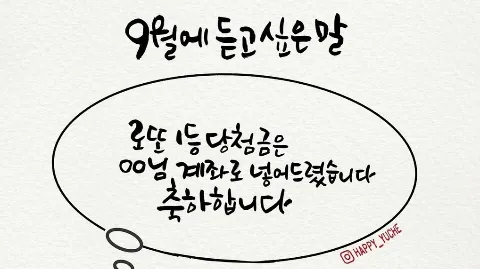 9월에 듣고 싶은 말
로또 1등 당첨금은
00님 계좌로 넣어드렸습니다
축하합니다
HAPPY_YUCHE